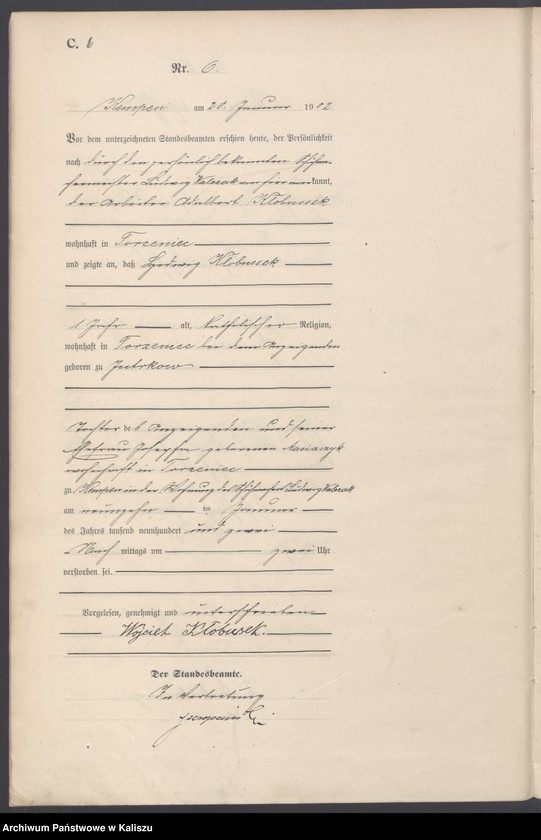 C. 6
Nr. 6.
Kempen am 20. Januar 1902
Vor dem unterzeichneten Standesbeamten erschien heute, der Persönlichkeit
nach durch den persönlich bekannten
Ludwig Walczak von hier anerkannt,
der Arbeiter Adalbert Klobusek
wohnhaft in Torzeniec
und zeigte an, daß Hedwig Klobusek
1 Jahr alt, katholischer Religion,
wohnhaft in Torzeniec bei dem Anzeigenden
geboren zu Jutrkow
Tochter des Anzeigenden und seiner
Ehefrau Josepha geborenen
wohnhaft in Torzeniec
zu Kempen in der Wohnung des Ludwig Walczak
am neunzehn ten Januar
des Jahres tausend neunhundert und zwei
Nach mittags um zwei Uhr
verstorben sei.
Vorgelesen, genehmigt und unterschrieben
Wojciech Kłobusek.
Der Standesbeamte.
In Vertretung
Archiwum Państwowe w Kaliszu